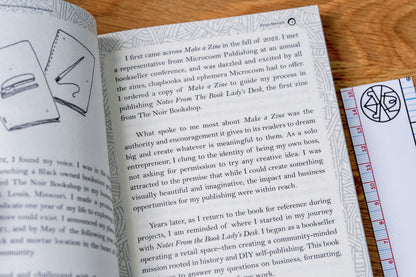 I found my voice. I was in the
anching a Black owned bookstore
d The Noir Bookshop in my home
. Louis, Missouri. I made a promise
edicate one year of my life to
ore could exist. I
21, and by May of the following year
ck and mortar location in the heart
community.
and challenged with
I first came across Make a Zine in the fall of 2022. I met
a representative from Microcosm Publishing at an annual
bookseller conference, and was dazzled and excited by all
the zines, chapbooks and ephemera Microcosm had to offer.
I ordered a copy of Make a Zine to guide my process in
publishing Notes From The Book Lady's Desk, the first zine
from The Noir Bookshop.
What spoke to me most about Make a Zine was the
authority and encouragement it gives to its readers to dream
big and create whatever is meaningful to them. As a solo
entrepreneur, I clung to the identity of being my own boss,
not asking for permission to try any creative idea. I was
attracted to the premise that while I could create something
visually beautiful and imaginative, the impact and business
opportunities for my publishing were within reach.
Years later, as I return to the book for reference during
projects, I am reminded of where I started in my journey
with Notes From the Book Lady's Desk. I began as a bookseller
operating a retail space–then creating a community-minded
mission rooted in history and DIY self-publishing. This book
to answer my questions on business, formatting,
my work.